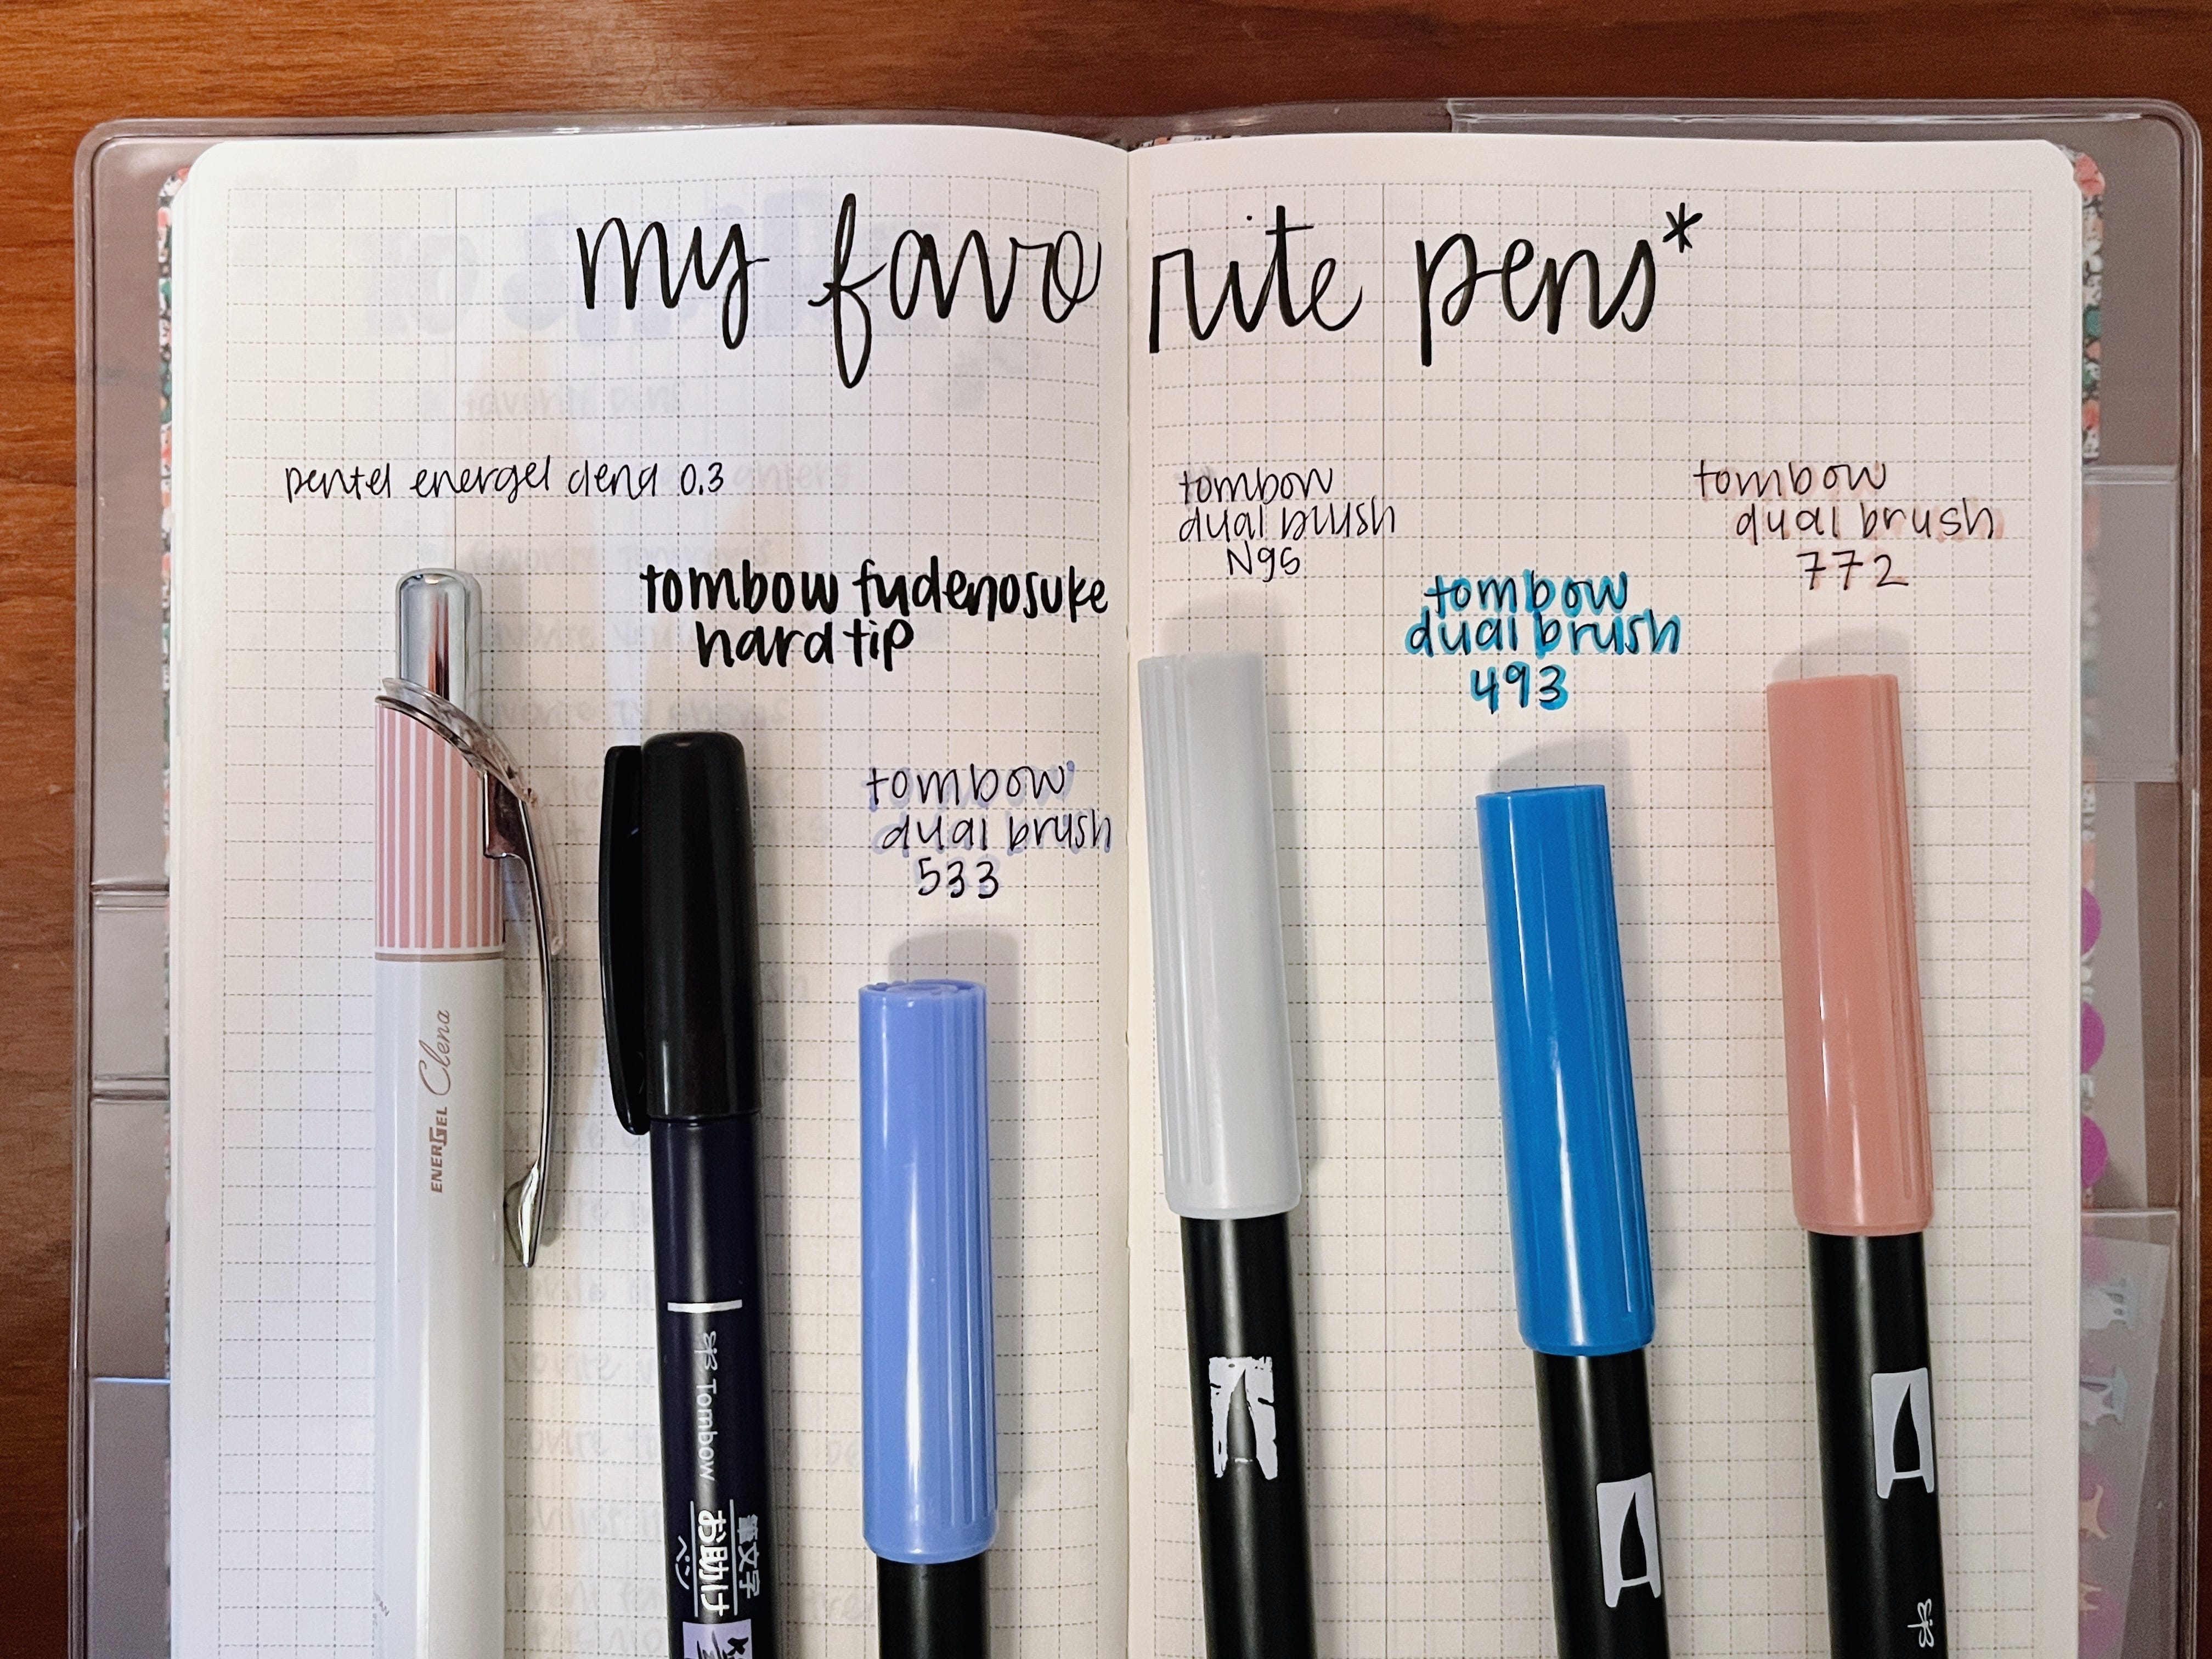 my favorite pens*
pentel energel clena 0.3
tombow fudenosuke
hard tip
tombow
dual brush
533
tombow
dual brush
N95
tombow
dual brush
493
tombow
dual brush
772
ENERGEL Clena
Tombow
筆文字
お助け
ペン